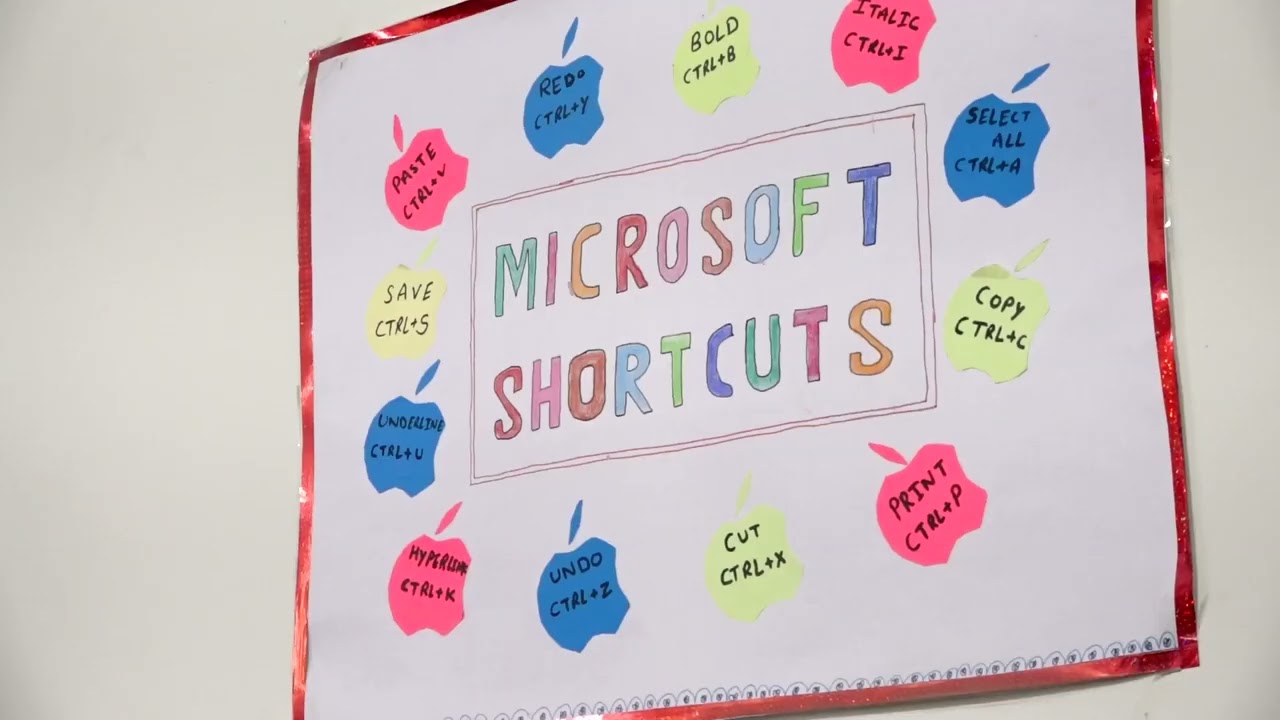 ITALIC
CTRL+I
BOLD
CTRL+B
REDO
CTRL+Y
SELECT
ALL
CTRL+A
PASTE
CTRL+V
MICROSOFT
SHORTCUTS
SAVE
CTRL+S
COPY
CTRL+C
UNDERLINE
CTRL+U
PRINT
CTRL+P
HYPERLINK
CTRL+K
UNDO
CTRL+Z
CUT
CTRL+X